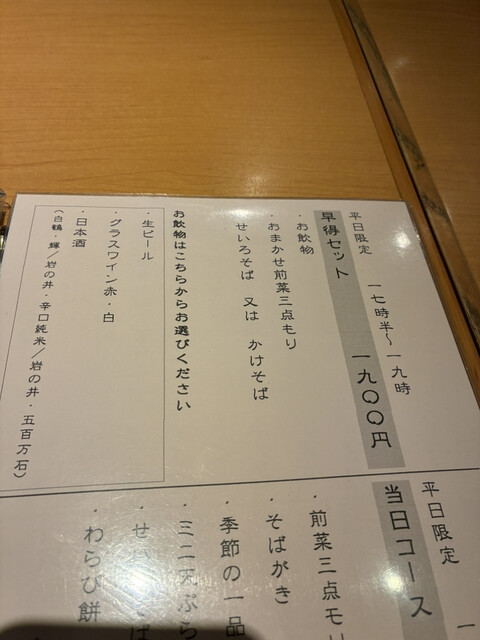 平日限定　一七時半〜一九時
早得セット　一九〇〇円
・お飲物
・おまかせ前菜三点もり
・せいろそば　又は　かけそば
お飲物はこちらからお選びください
・生ビール
・グラスワイン赤・白
・日本酒
（白鶴・輝／岩の井・辛口純米／岩の井・五百万石）
平日限定　一
当日コース
・前菜三点モリ
・そばがき
・季節の一品
・ミニ天ぷら
・せい
・わらび餅